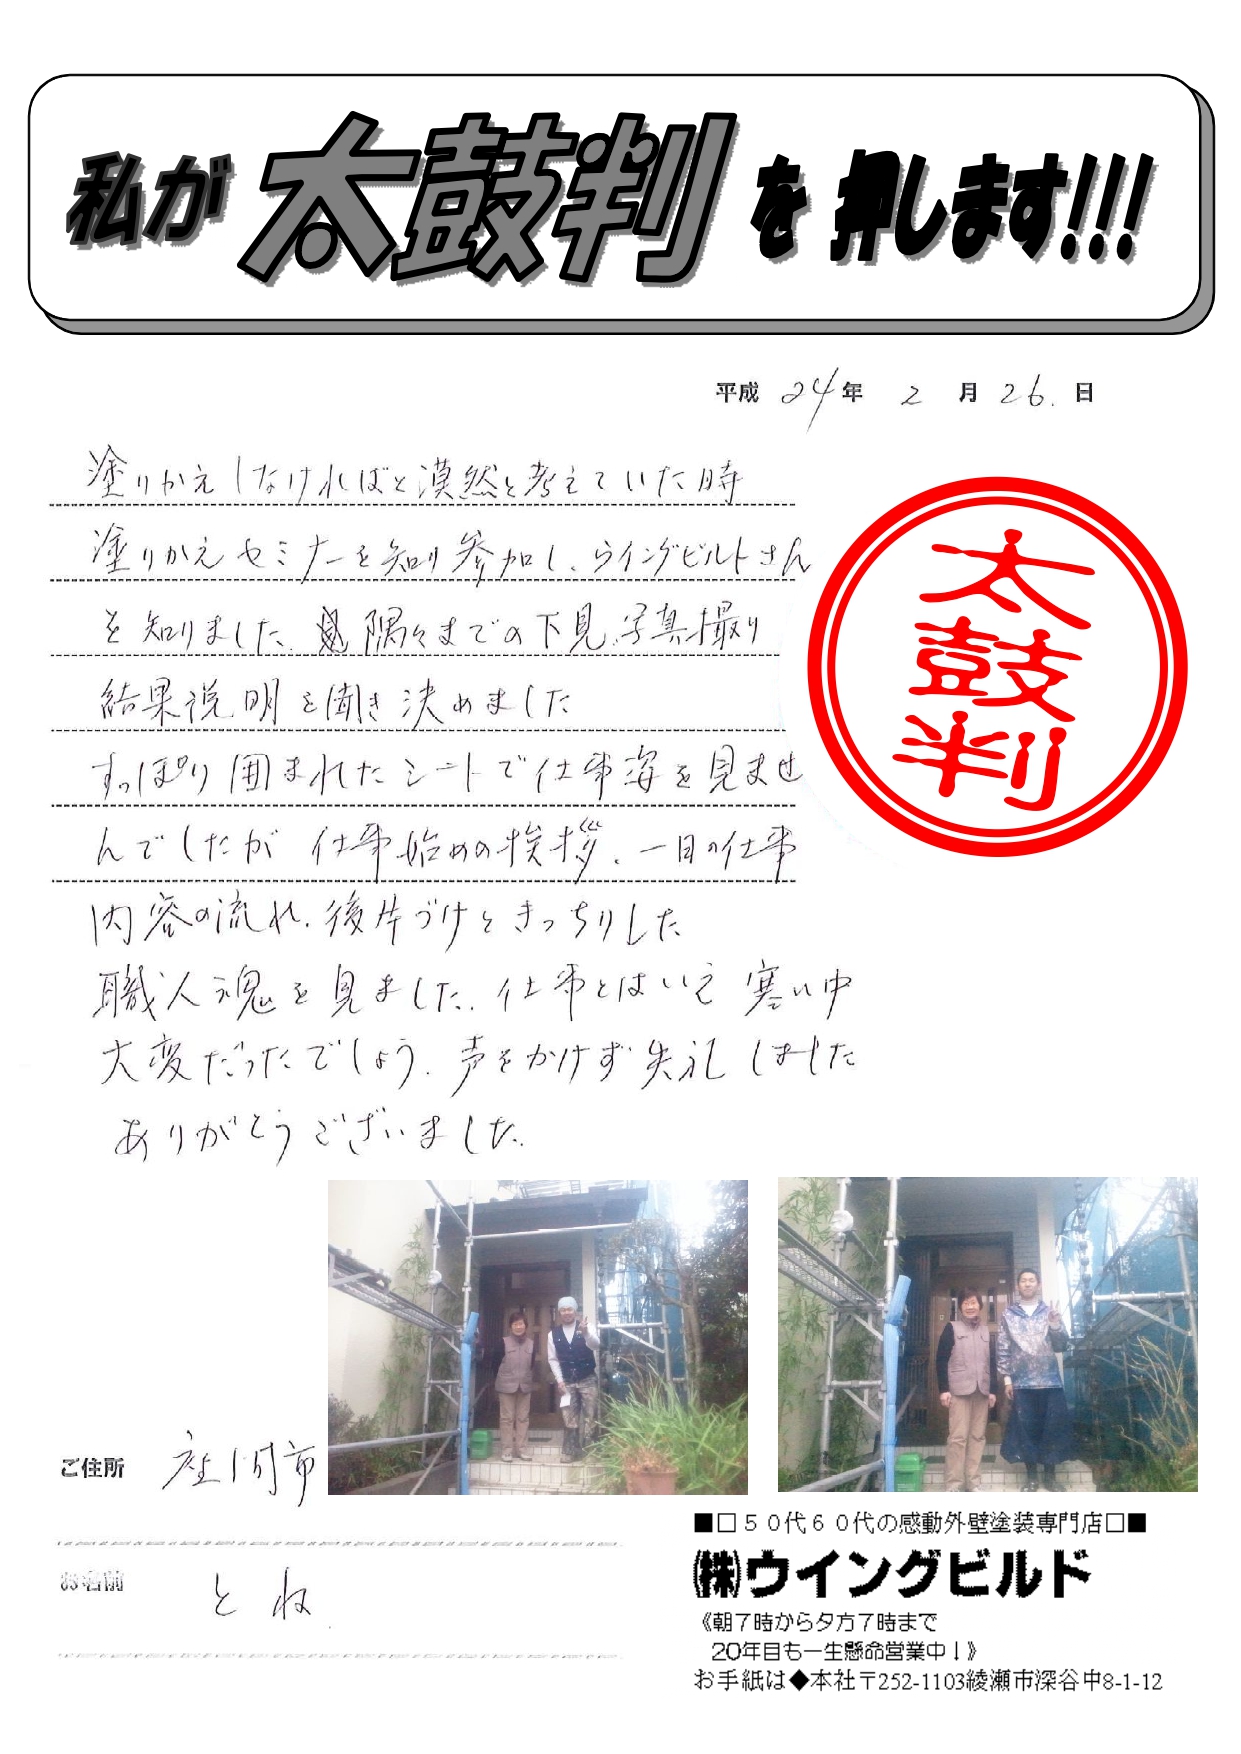 私が 太鼓判 を 押します!!!
平成 24年 2月 26.日
塗りかえしなければと漠然と考えていた時
塗りかえセミナーを知り参加し、ウイングビルトさん
を知りました。隅々までの下見、写真撮り
結果説明を聞き決めました
すっぽり囲まれたシートで仕事姿を見ませ
んでしたが 仕事始めの挨拶、一日の仕事
内容の流れ、後片づけときっちりした
職人魂を見ました。仕事とはいえ 寒い中
大変だったでしょう。声をかけず失礼しました
ありがとうございました。
太鼓判
ご住所 座間市
お名前 とね
■□50代60代の感動外壁塗装専門店□■
㈱ウイングビルド
《朝7時から夕方7時まで
20年目も一生懸命営業中!》
お手紙は◆本社〒252-1103綾瀬市深谷中8-1-12